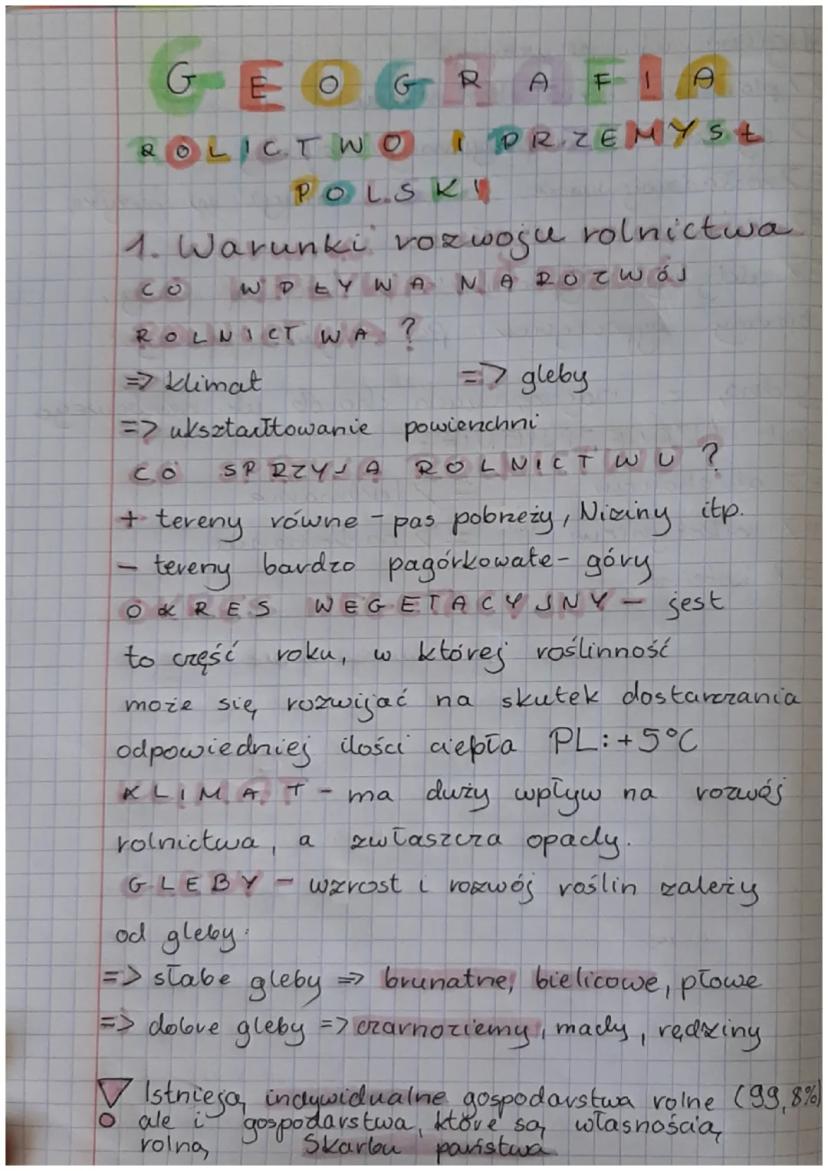 GEOGRAFIA
ROLICTWO I PRZEMYSŁ
POLSKI
1. Warunki rozwoju rolnictwa
CO WPŁYWA NA ROZWÓJ
ROLNICTWA?
=> klimat => gleby
=> ukształtowanie powierzchni
CO SPRZYJA ROLNICTWU?
+ tereny równe - pas pobrzeży, Niziny itp.
- tereny bardzo pagórkowate - góry
OKRES WEGETACYJNY - jest
to część roku, w której roślinność
może się rozwijać na skutek dostarczania
odpowiedniej ilości ciepła PL: +5°C
KLIMAT - ma duży wpływ na rozwój
rolnictwa, a zwłaszcza opady.
GLEBY - wzrost i rozwój roślin zależy
od gleby.
=> słabe gleby => brunatne, bielicowe, płowe
=> dobre gleby => czarnoziemy, mady, rędziny
Istnieją indywidualne gospodarstwa rolne (99,8%)
ale i gospodarstwa, które są własnością
rolną Skarbu państwa